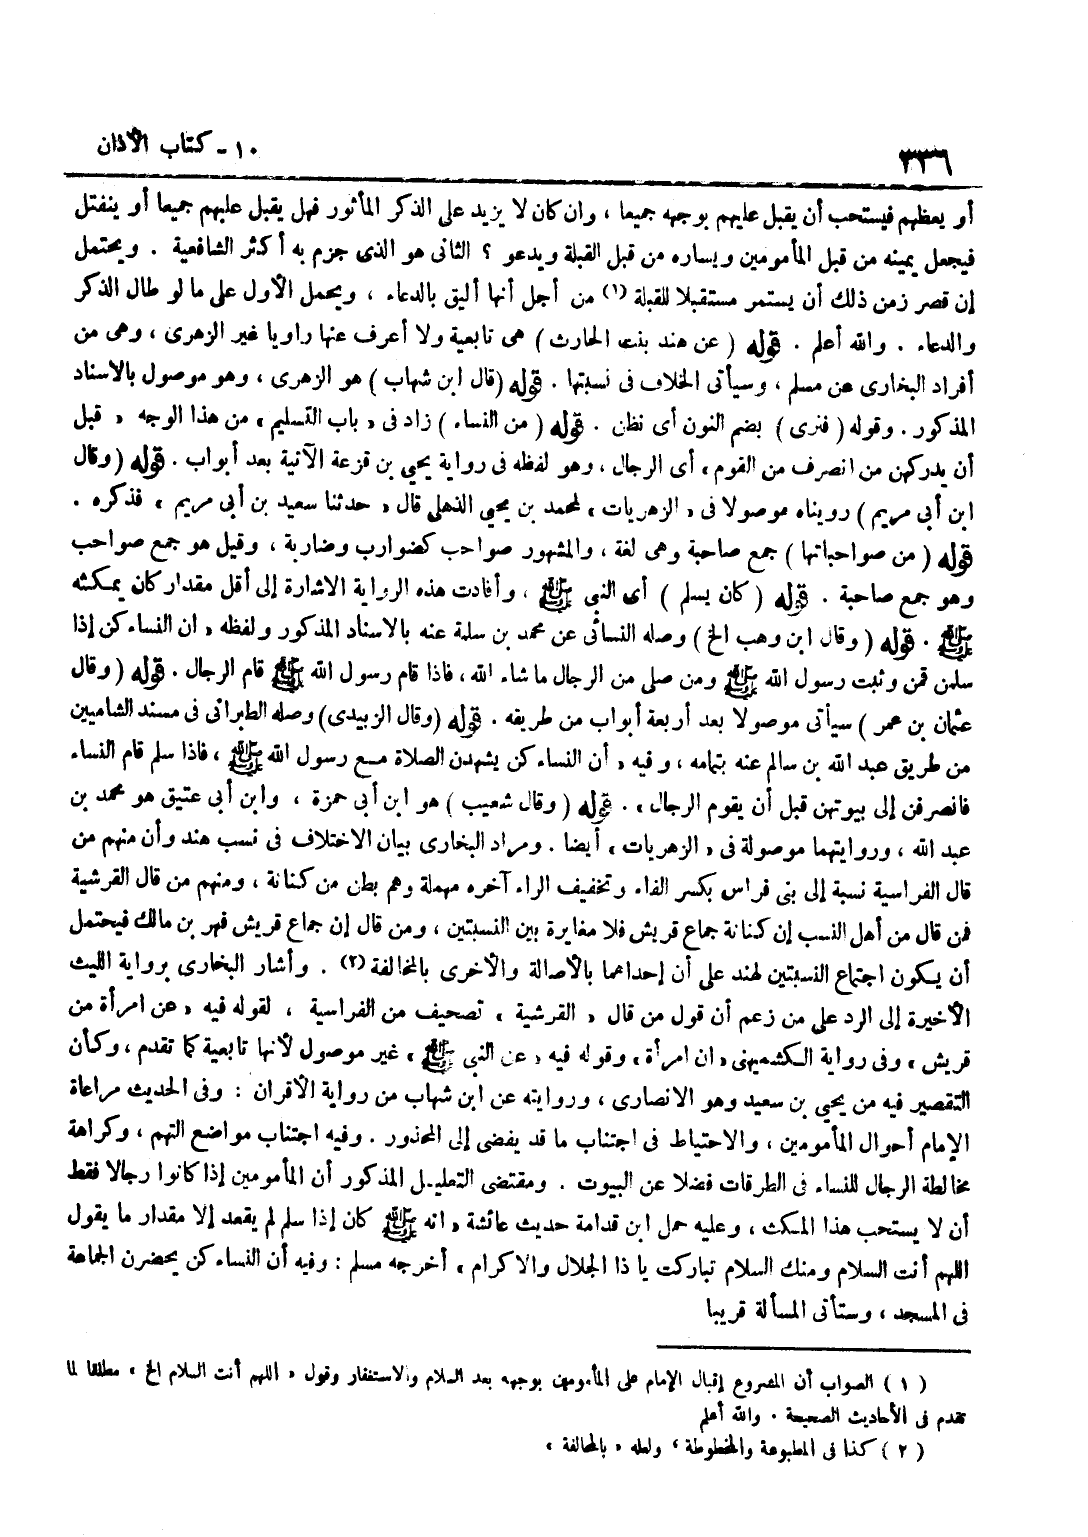 ٣٣٦
١٠ - كتاب الأذان
أو يعظهم فيستحب أن يقبل عليهم بوجهه جميعا ، وان كان لا يزيد على الذكر المأثور فهل يقبل عليهم جميعا أو ينفتل
فيجعل يمينه من قبل المأمومين ويساره من قبل القبلة ويدعو ؟ الثانى هو الذى جزم به أكثر الشافعية . ويحتمل
إن قصر زمن ذلك أن يستمر مستقبلا للقبلة (١) من أجل أنها أليق بالدعاء ، ويحمل الأول على ما لو طال الذكر
والدعاء . والله أعلم . قوله ( عن هند بنت الحارث ) هى تابعية ولا أعرف عنها راويا غير الزهرى ، وهى من
أفراد البخارى عن مسلم ، وسيأتى الخلاف فى نسبتها . قوله (قال ابن شهاب ) هو الزهرى ، وهو موصول بالاسناد
المذكور . وقوله ( فنرى ) بضم النون أى نظن . قوله ( من النساء ) زاد فى « باب التسليم » من هذا الوجه « قبل
أن يدركهن من انصرف من القوم » أى الرجال ، وهو لفظه فى رواية يحيى بن قزعة الآتية بعد أبواب . قوله ( وقال
ابن أبى مريم ) رويناه موصولا فى « الزهريات » لمحمد بن يحيى الذهلى قال « حدثنا سعيد بن أبى مريم » فذكره .
قوله ( من صواحباتها ) جمع صاحبة وهى لغة ، والمشهور صواحب كضوارب وضاربة ، وقيل هو جمع صواحب
وهو جمع صاحبة . قوله ( كان يسلم ) أى النبى ﷺ ، وأفادت هذه الرواية الاشارة إلى أقل مقدار كان يمكثه
ﷺ . قوله ( وقال ابن وهب الخ ) وصله النسائى عن محمد بن سلمة عنه بالاسناد المذكور ولفظه « ان النساء كن إذا
سلمن قمن وثبت رسول الله ﷺ ومن صلى من الرجال ما شاء الله ، فاذا قام رسول الله ﷺ قام الرجال . قوله ( وقال
عثمان بن عمر ) سيأتى موصولا بعد أربعة أبواب من طريقه . قوله (وقال الزبيدى) وصله الطبرانى فى مسند الشاميين
من طريق عبد الله بن سالم عنه بتمامه ، وفيه « أن النساء كن يشهدن الصلاة مع رسول الله ﷺ ، فاذا سلم قام النساء
فانصرفن إلى بيوتهن قبل أن يقوم الرجال » . قوله ( وقال شعيب ) هو ابن أبى حمزة ، وابن أبى عتيق هو محمد بن
عبد الله ، وروايتهما موصولة فى « الزهريات » أيضا . ومراد البخارى بيان الاختلاف فى نسب هند وأن منهم من
قال الفراسية نسبة إلى بنى فراس بكسر الفاء وتخفيف الراء آخره مهملة وهم بطن من كنانة ، ومنهم من قال القرشية
فمن قال من أهل النسب إن كنانة جماع قريش فلا مغايرة بين النسبتين ، ومن قال إن جماع قريش فهر بن مالك فيحتمل
أن يكون اجتماع النسبتين لهند على أن إحداهما بالأصالة والأخرى بالمخالفة (٢) . وأشار البخارى برواية الليث
الأخيرة إلى الرد على من زعم أن قول من قال « القرشية » تصحيف من الفراسية ، لقوله فيه « عن امرأة من
قريش » وفى رواية الكشميهنى « ان امرأة » وقوله فيه « عن النبى ﷺ » غير موصول لأنها تابعية كما تقدم ، وكأن
التقصير فيه من يحيى بن سعيد وهو الانصارى ، وروايته عن ابن شهاب من رواية الأقران : وفى الحديث مراعاة
الإمام أحوال المأمومين ، والاحتياط فى اجتناب ما قد يفضى إلى المحذور . وفيه اجتناب مواضع التهم ، وكراهة
مخالطة الرجال للنساء فى الطرقات فضلا عن البيوت . ومقتضى التعليل المذكور أن المأمومين إذا كانوا رجالا فقط
أن لا يستحب هذا المكث ، وعليه حمل ابن قدامة حديث عائشة « انه ﷺ كان إذا سلم لم يقعد إلا مقدار ما يقول
اللهم أنت السلام ومنك السلام تباركت يا ذا الجلال والاكرام » أخرجه مسلم : وفيه أن النساء كن يحضرن الجماعة
فى المسجد ، وستأتى المسألة قريبا
( ١ ) الصواب أن المشروع إقبال الإمام على المأمومين بوجهه بعد السلام والاستغفار وقول « اللهم أنت السلام الخ » مطلقا لما
تقدم فى الأحاديث الصحيحة . والله أعلم
( ٢ ) كذا فى المطبوعة والمخطوطة ، ولعله « بالمحالفة »